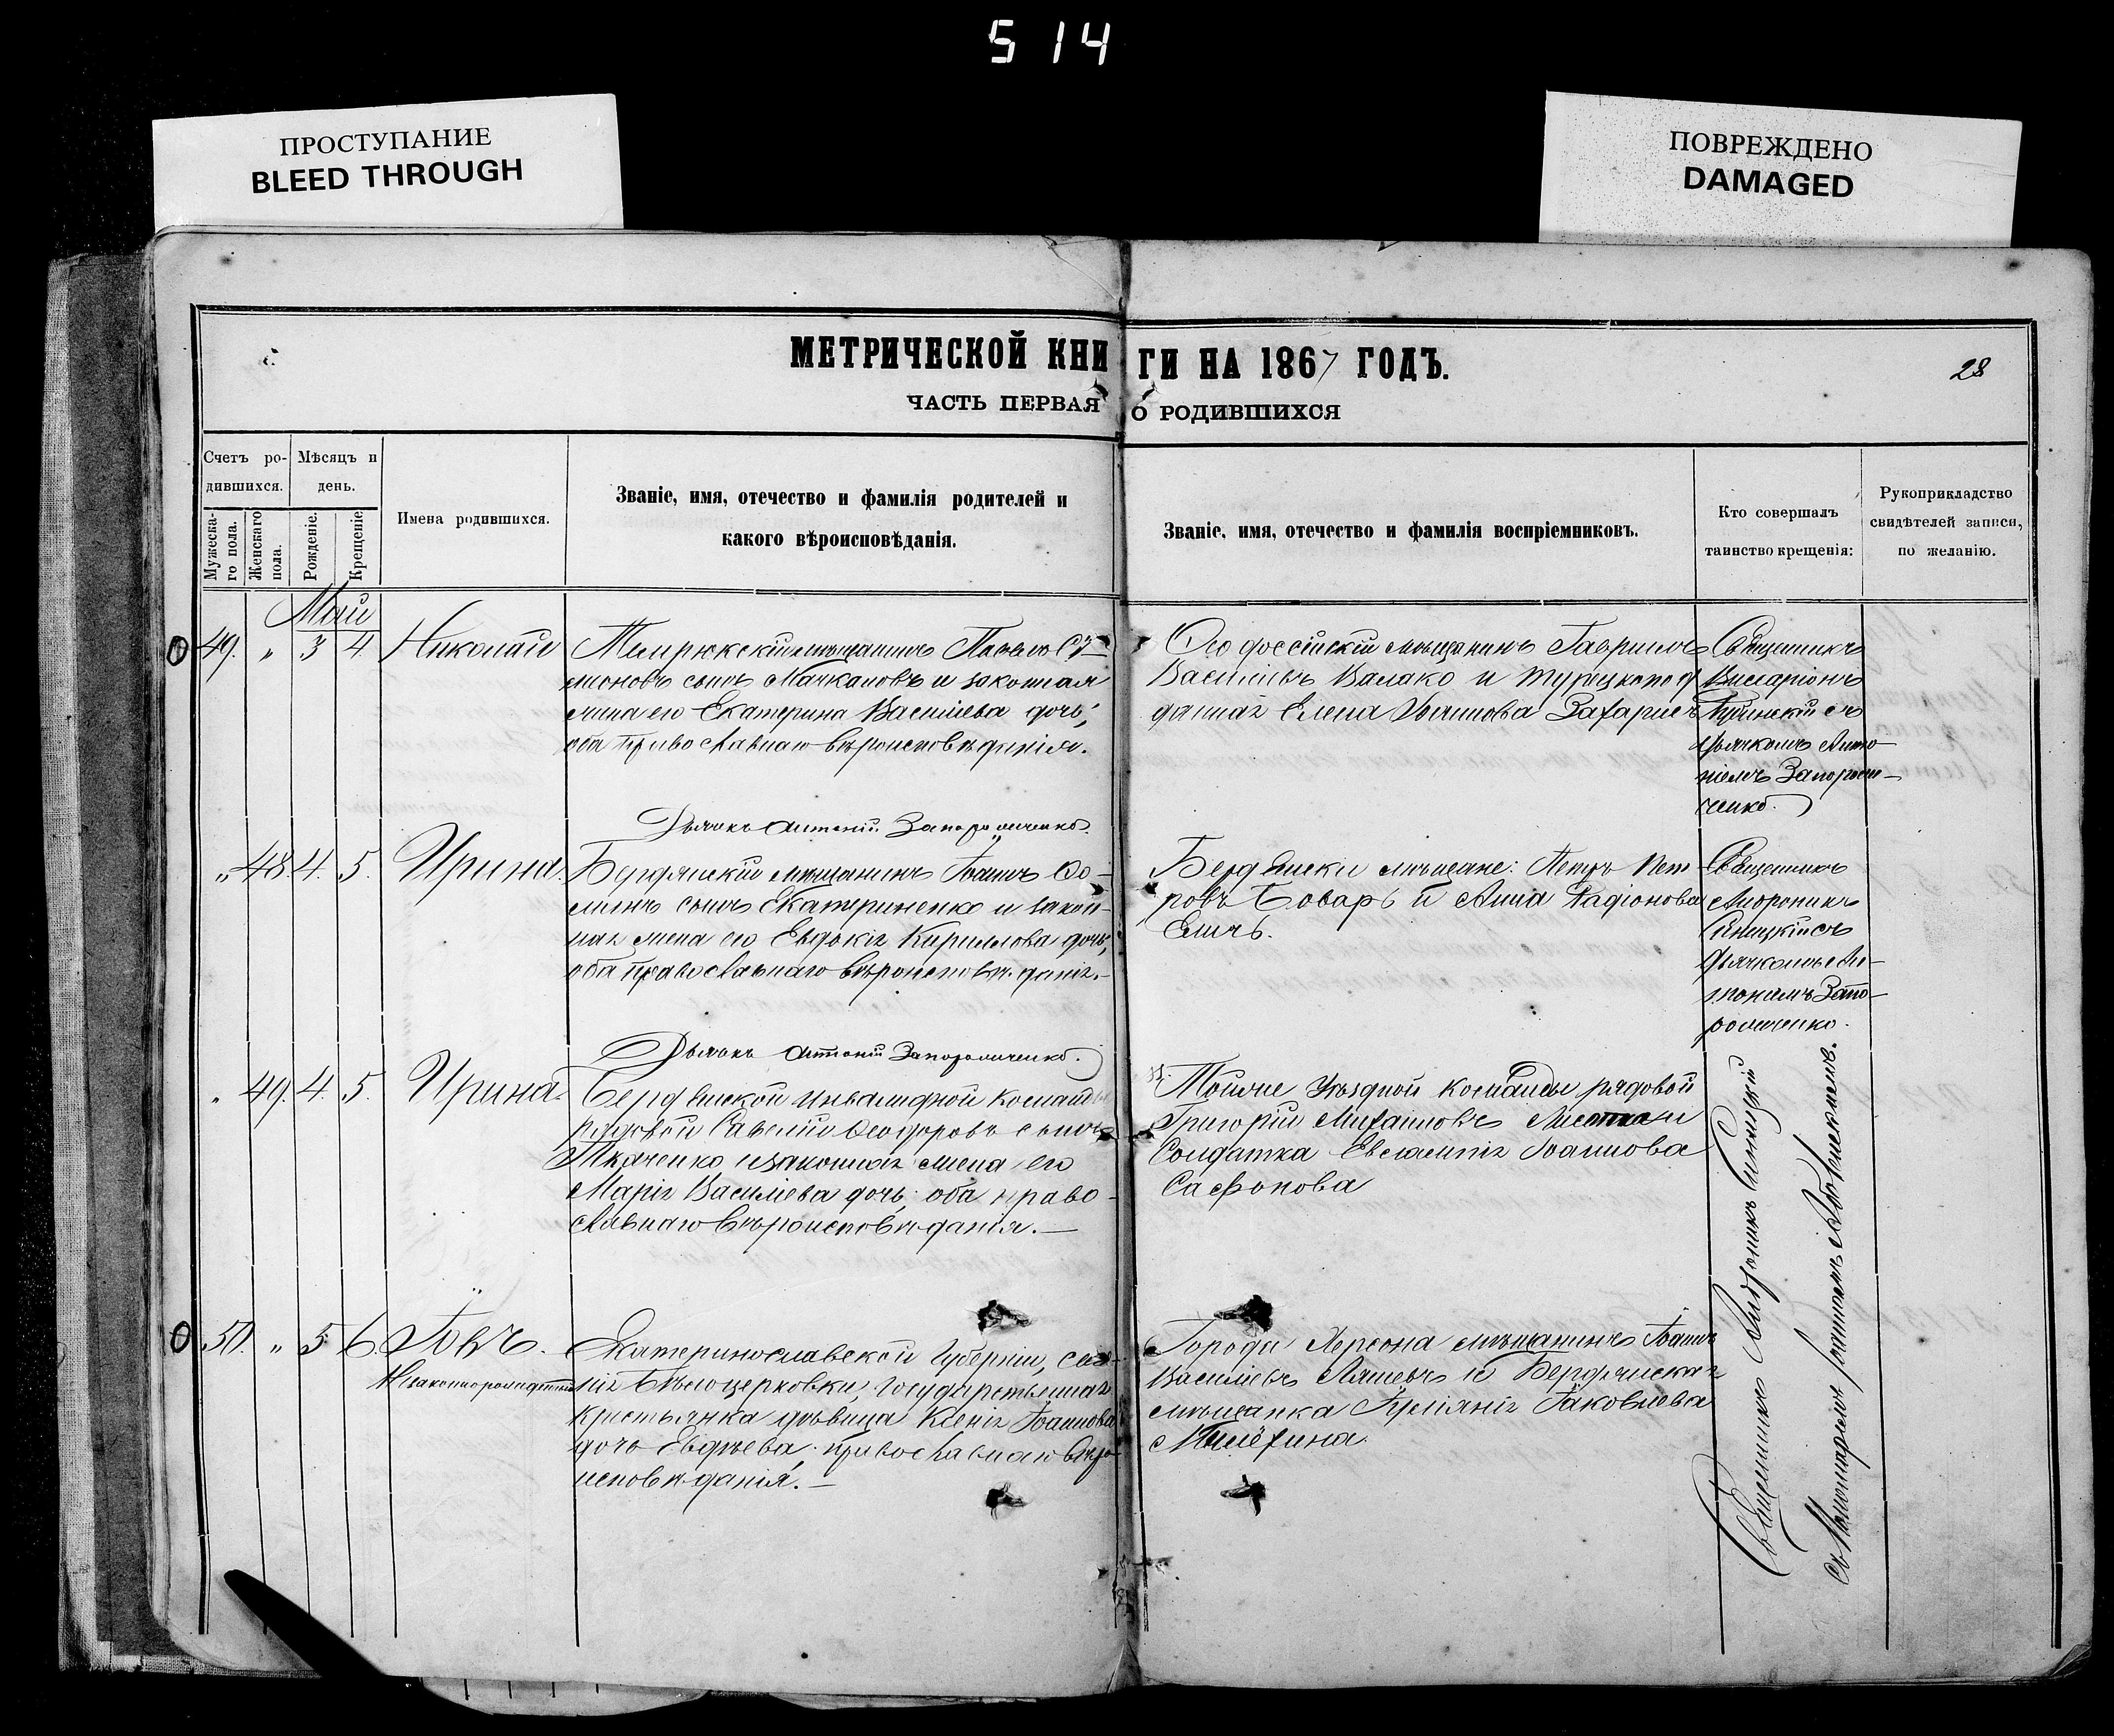 5 14
ПРОСТУПАНИЕ
BLEED THROUGH
ПОВРЕЖДЕНО
DAMAGED
МЕТРИЧЕСКОЙ КНИГИ НА 1867 ГОДЪ.
28
ЧАСТЬ ПЕРВАЯ О РОДИВШИХСЯ
Счетъ ро-
дившихся.
Мѣсяцъ и
день.
Мужеска-
го пола.
Женскаго
пола.
Рожденіе.
Крещеніе
Имена родившихся.
Званіе, имя, отечество и фамилія родителей и
какого вѣроисповѣданія.
Званіе, имя, отечество и фамилія воспріемниковъ.
Кто совершалъ
таинство крещенія:
Рукоприкладство
свидѣтелей записи,
по желанію.
Май
49. " 3 4 Николай
Темрюкскій мѣщанинъ Павелъ Сѵ-
моновъ сынъ Мачкаловъ и законная
жена его Екатерина Васильева дочь,
оба православнаго вѣроисповѣданія.
Ѳеодосійскій мѣщанинъ Гавриилъ
Васильевъ Валако и турецкопод
данная Елена Иванова Захарисъ
Священникъ
Виссаріонъ
съ
дьячкомъ Анто-
ніемъ Запорож-
ченко.
Дьячекъ Антоній Запорожченко.
" 48 4. 5. Ирина.
Бердянскій мѣщанинъ Іоаннъ Ѳо-
минъ сынъ Екатериненко и закон-
ная жена его Евдокія Кириллова дочь,
оба православнаго вѣроисповѣданія.-
Бердянски мѣщане: Петръ Пет
ровъ Боварь и Анна Радіонова
Священникъ
Андроникъ
Синицкій съ
дьячкомъ Ан-
тоніемъ Запо-
рожченко.
Дьячекъ Антоній Запорожченко.
" 49. 4. 5. Ирина.
Бердянской инвалидной команды
рядовой Савелій Ѳеодоровъ сынъ
Ткаченко и законная жена его
Марія Васильева дочь, оба право-
славнаго вѣроисповѣданія.-
Тойже Уѣздной команды рядовой
Григорій Михаиловъ и
Солдатка Евгенія Іоаннова
Сафонова
50. " 5 6. Іовъ.
Незаконнорожденный
Екатеринославской Губерніи, села
Бѣлоцерковки, государственная
крестьянка дѣвица Ксенія Іоаннова
дочь Евдѣева, православнаго вѣро-
исповѣданія.-
Города Херсона мѣщанинъ Іоаннъ
Васильевъ Ляшевъ и Бердянская
мѣщанка Іаковлева
Священникъ Андроникъ Синицкій
съ Пономаремъ Іоанномъ